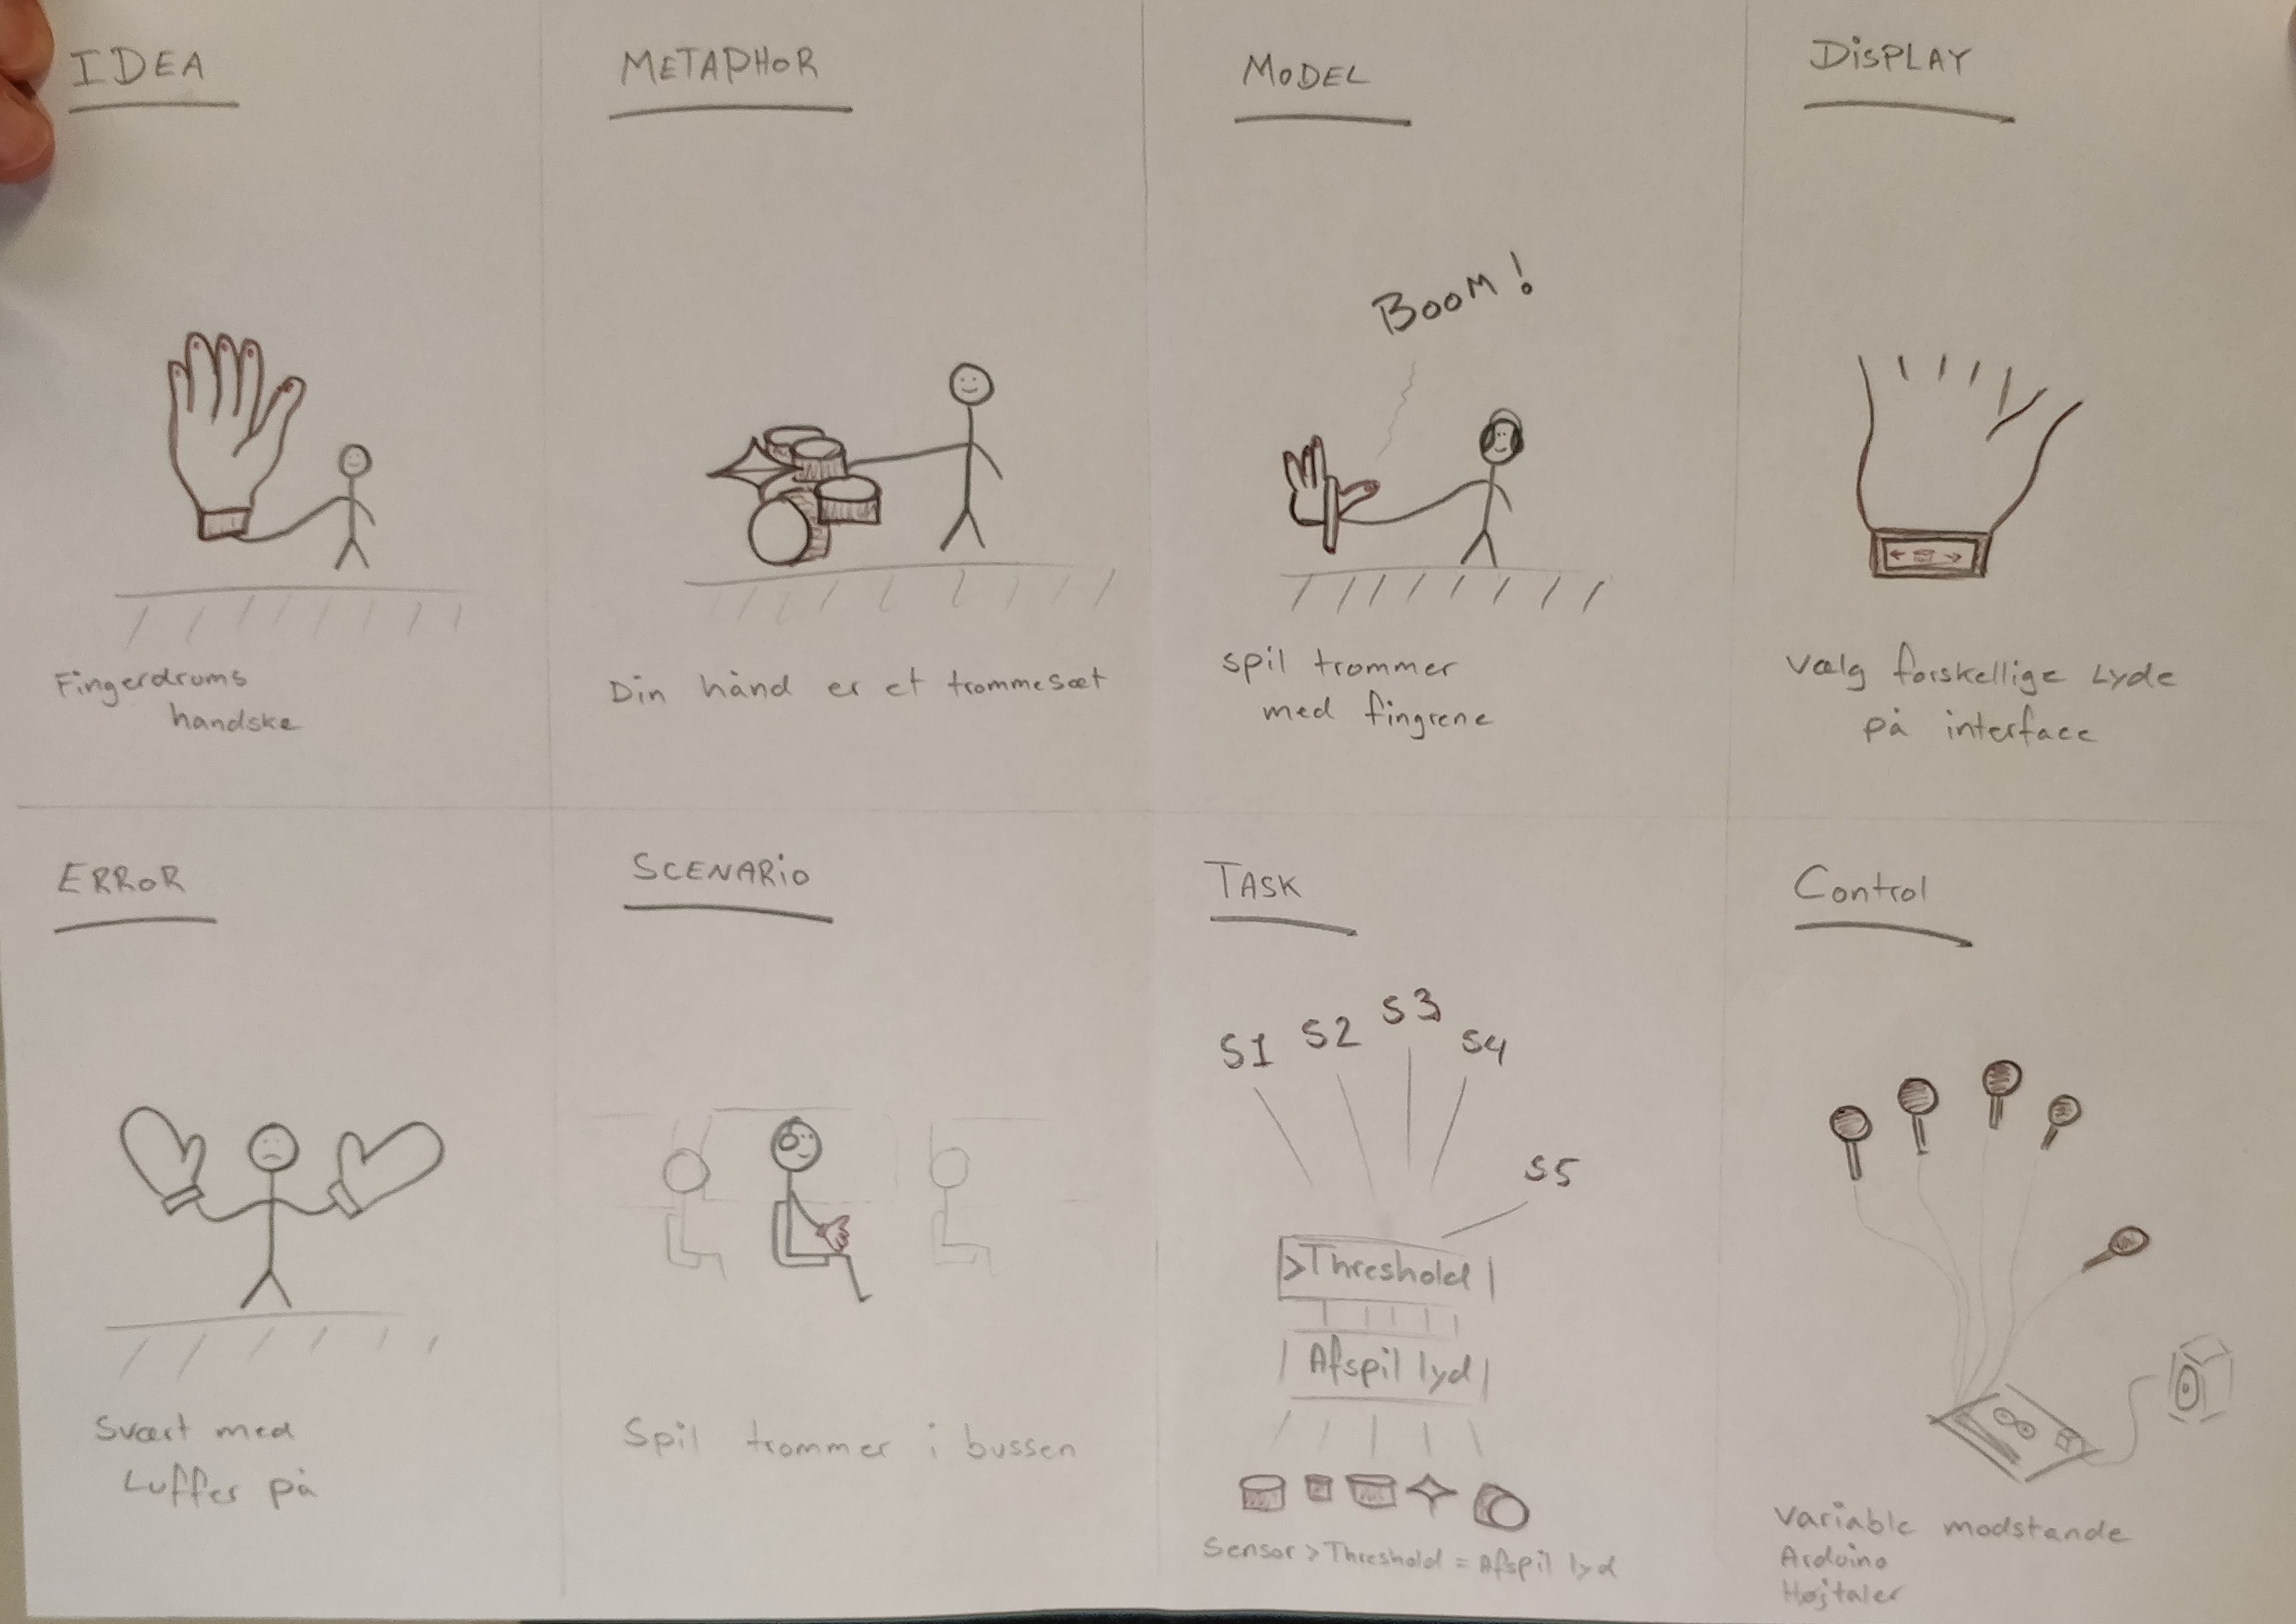 IDEA
Fingerdrums
handske
METAPHOR
Din hånd er et trommesæt
MODEL
BOOM!
spil trommer
med fingrene
DiSPLAY
Vælg forskellige Lyde
på interface
ERROR
Svært med
Luffer på
SCENARiO
Spil trommer i bussen
TASK
S1 S2 S3 S4
S5
>Threshold
Afspil lyd
Sensor > Threshold = Afspil lyd
Control
Variable modstande
Arduino
Højtaler